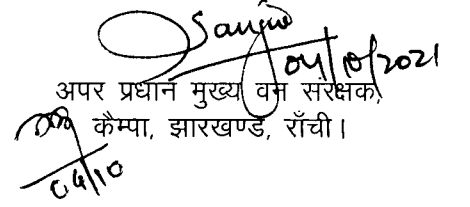 Sanjiv
04/10/2021
अपर प्रधान मुख्य वन संरक्षक,
कैम्पा, झारखण्ड, राँची।
04/10